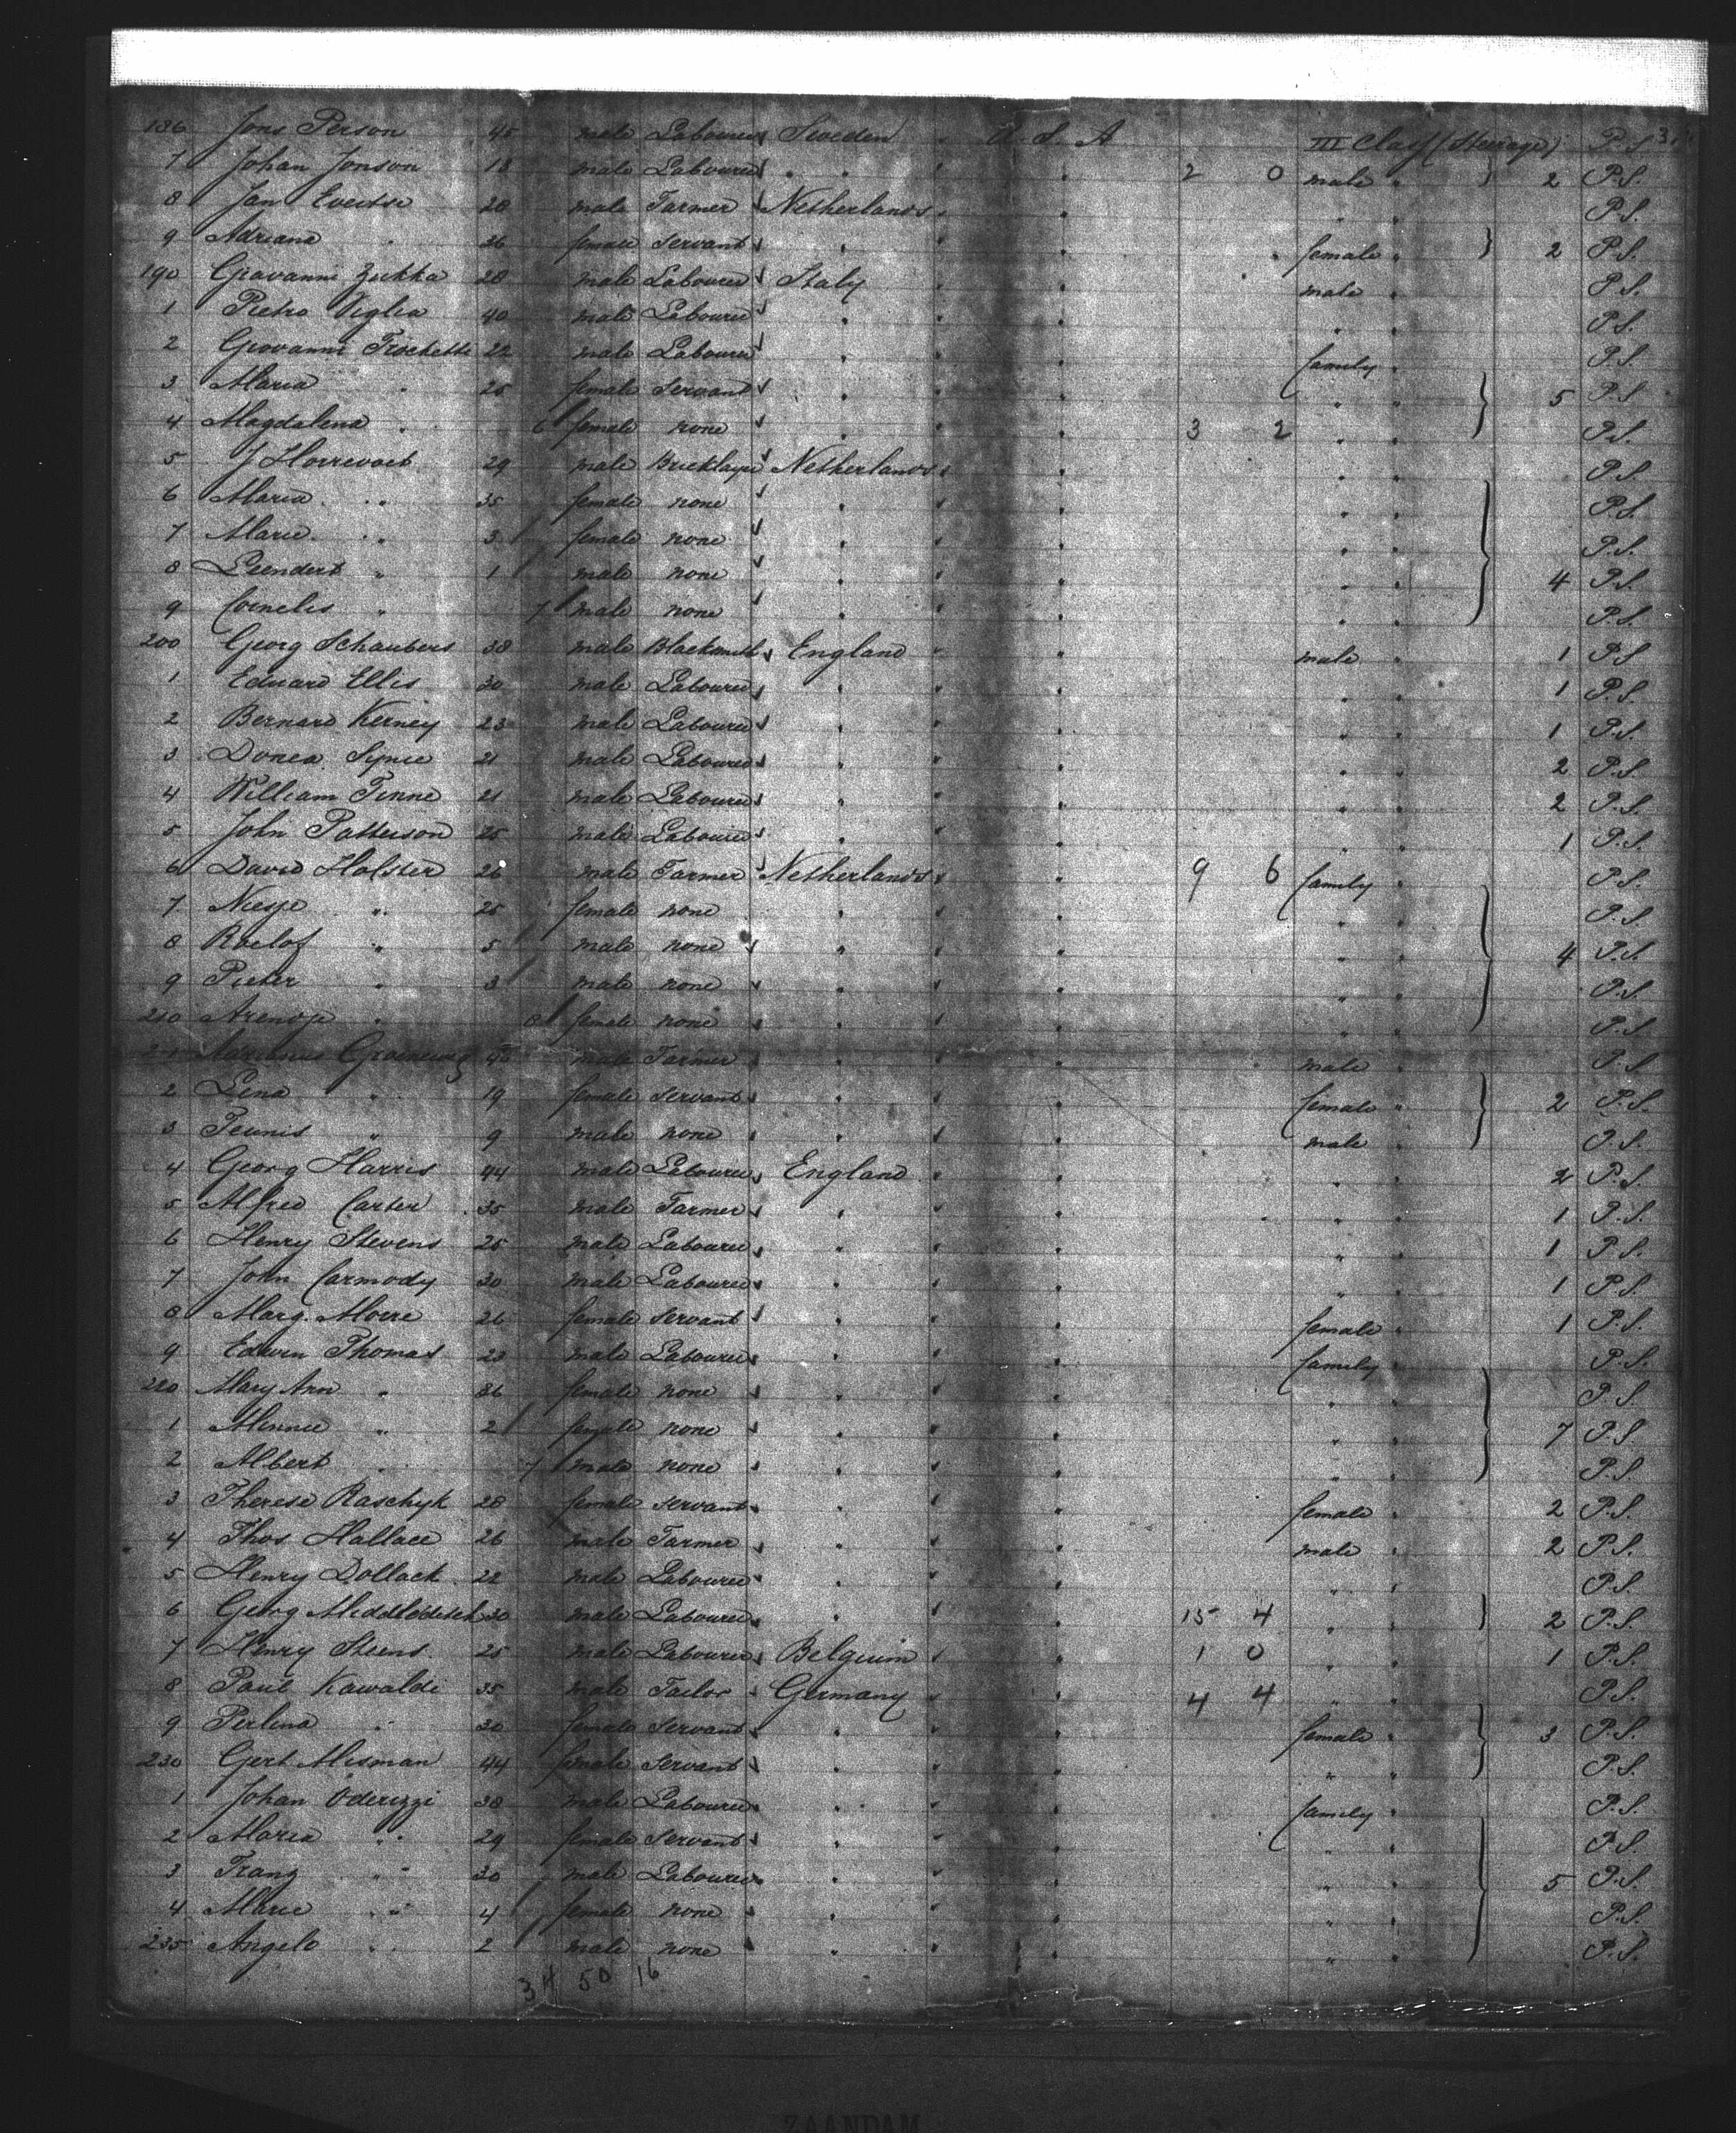 186 Jons Person 45 male Labourer Sweden " U. S. A III Class (Steerage) P.S. 3
7 Johan Jonson 18 male Labourer " " " 2 0 male " 2 P.S.
8 Jan Evertse 28 male Farmer Netherlands " " " " P.S.
9 Adriana " 36 female Servant " " " female " 2 P.S.
190 Giovanni Zukka 28 male Labourer Italy " " male " P.S.
1 Pietro Viglia 40 male Labourer " " " " " P.S.
2 Giovanni Trochette 22 male Labourer " " " family " P.S.
3 Maria " 25 female Servant " " " " " 5 P.S.
4 Magdalena " 6 female none " " " 3 2 " " P.S.
5 J Horrevoet 29 male Bricklayer Netherlands " " " " P.S.
6 Maria " 35 female none " " " " " P.S.
7 Marie " 3 female none " " " " " P.S.
8 Leendert " 1 male none " " " " " 4 P.S.
9 Cornelis " 7 male none " " " " " P.S.
200 Georg Schaubers 38 male Blacksmith England " " male " 1 P.S.
1 Eduard Ellis 30 male Labourer " " " " " 1 P.S.
2 Bernard Kerney 23 male Labourer " " " " " 1 P.S.
3 Donea Synce 21 male Labourer " " " " " 2 P.S.
4 William Finne 21 male Labourer " " " " " 2 P.S.
5 John Patterson 25 male Labourer " " " " " 1 P.S.
6 David Holster 26 male Farmer Netherlands " " 9 6 family " P.S.
7 Niesje " 25 female none " " " " " P.S.
8 Roelof " 5 male none " " " " " 4 P.S.
9 Pieter " 3 male none " " " " " P.S.
210 Arendje " 8 female none " " " " " P.S.
211 Adrianus Groeneweg 45 male Farmer " " " male " P.S.
2 Lena " 19 female Servant " " " female " 2 P.S.
3 Teunis " 9 male none " " " male " P.S.
4 Georg Harris 44 male Labourer England " " " " 2 P.S.
5 Alfred Carter 35 male Farmer " " " " " 1 P.S.
6 Henry Stevens 25 male Labourer " " " " " 1 P.S.
7 John Carmody 30 male Labourer " " " " " 1 P.S.
8 Marg. Morre 26 female Servant " " " female " 1 P.S.
9 Edwin Thomas 23 male Labourer " " " family " P.S.
220 Mary Ann " 26 female none " " " " " P.S.
1 Minnie " 2 female none " " " " " 7 P.S.
2 Albert " 7 male none " " " " " P.S.
3 Therese Raschyk 28 female Servant " " " female " 2 P.S.
4 Thos Hallace 26 male Farmer " " " male " 2 P.S.
5 Henry Dollack 22 male Labourer " " " " " P.S.
6 Georg Middleditch 30 male Labourer " " " 15 4 " " 2 P.S.
7 Henry Steens 25 male Labourer Belgium " " 1 0 " " 1 P.S.
8 Paul Kawalde 35 male Tailor Germany " " 4 4 " " P.S.
9 Perlina " 30 female Servant " " " female " 3 P.S.
230 Gert Misman 44 female Servant " " " " " P.S.
1 Johan Oderizzi 38 male Labourer " " " family " P.S.
2 Maria " 29 female Servant " " " " " P.S.
3 Franz " 30 male Labourer " " " " " 5 P.S.
4 Marie " 4 female none " " " " " P.S.
235 Angelo " 2 male none " " " " " P.S.
34 50 16
ZAANDAM